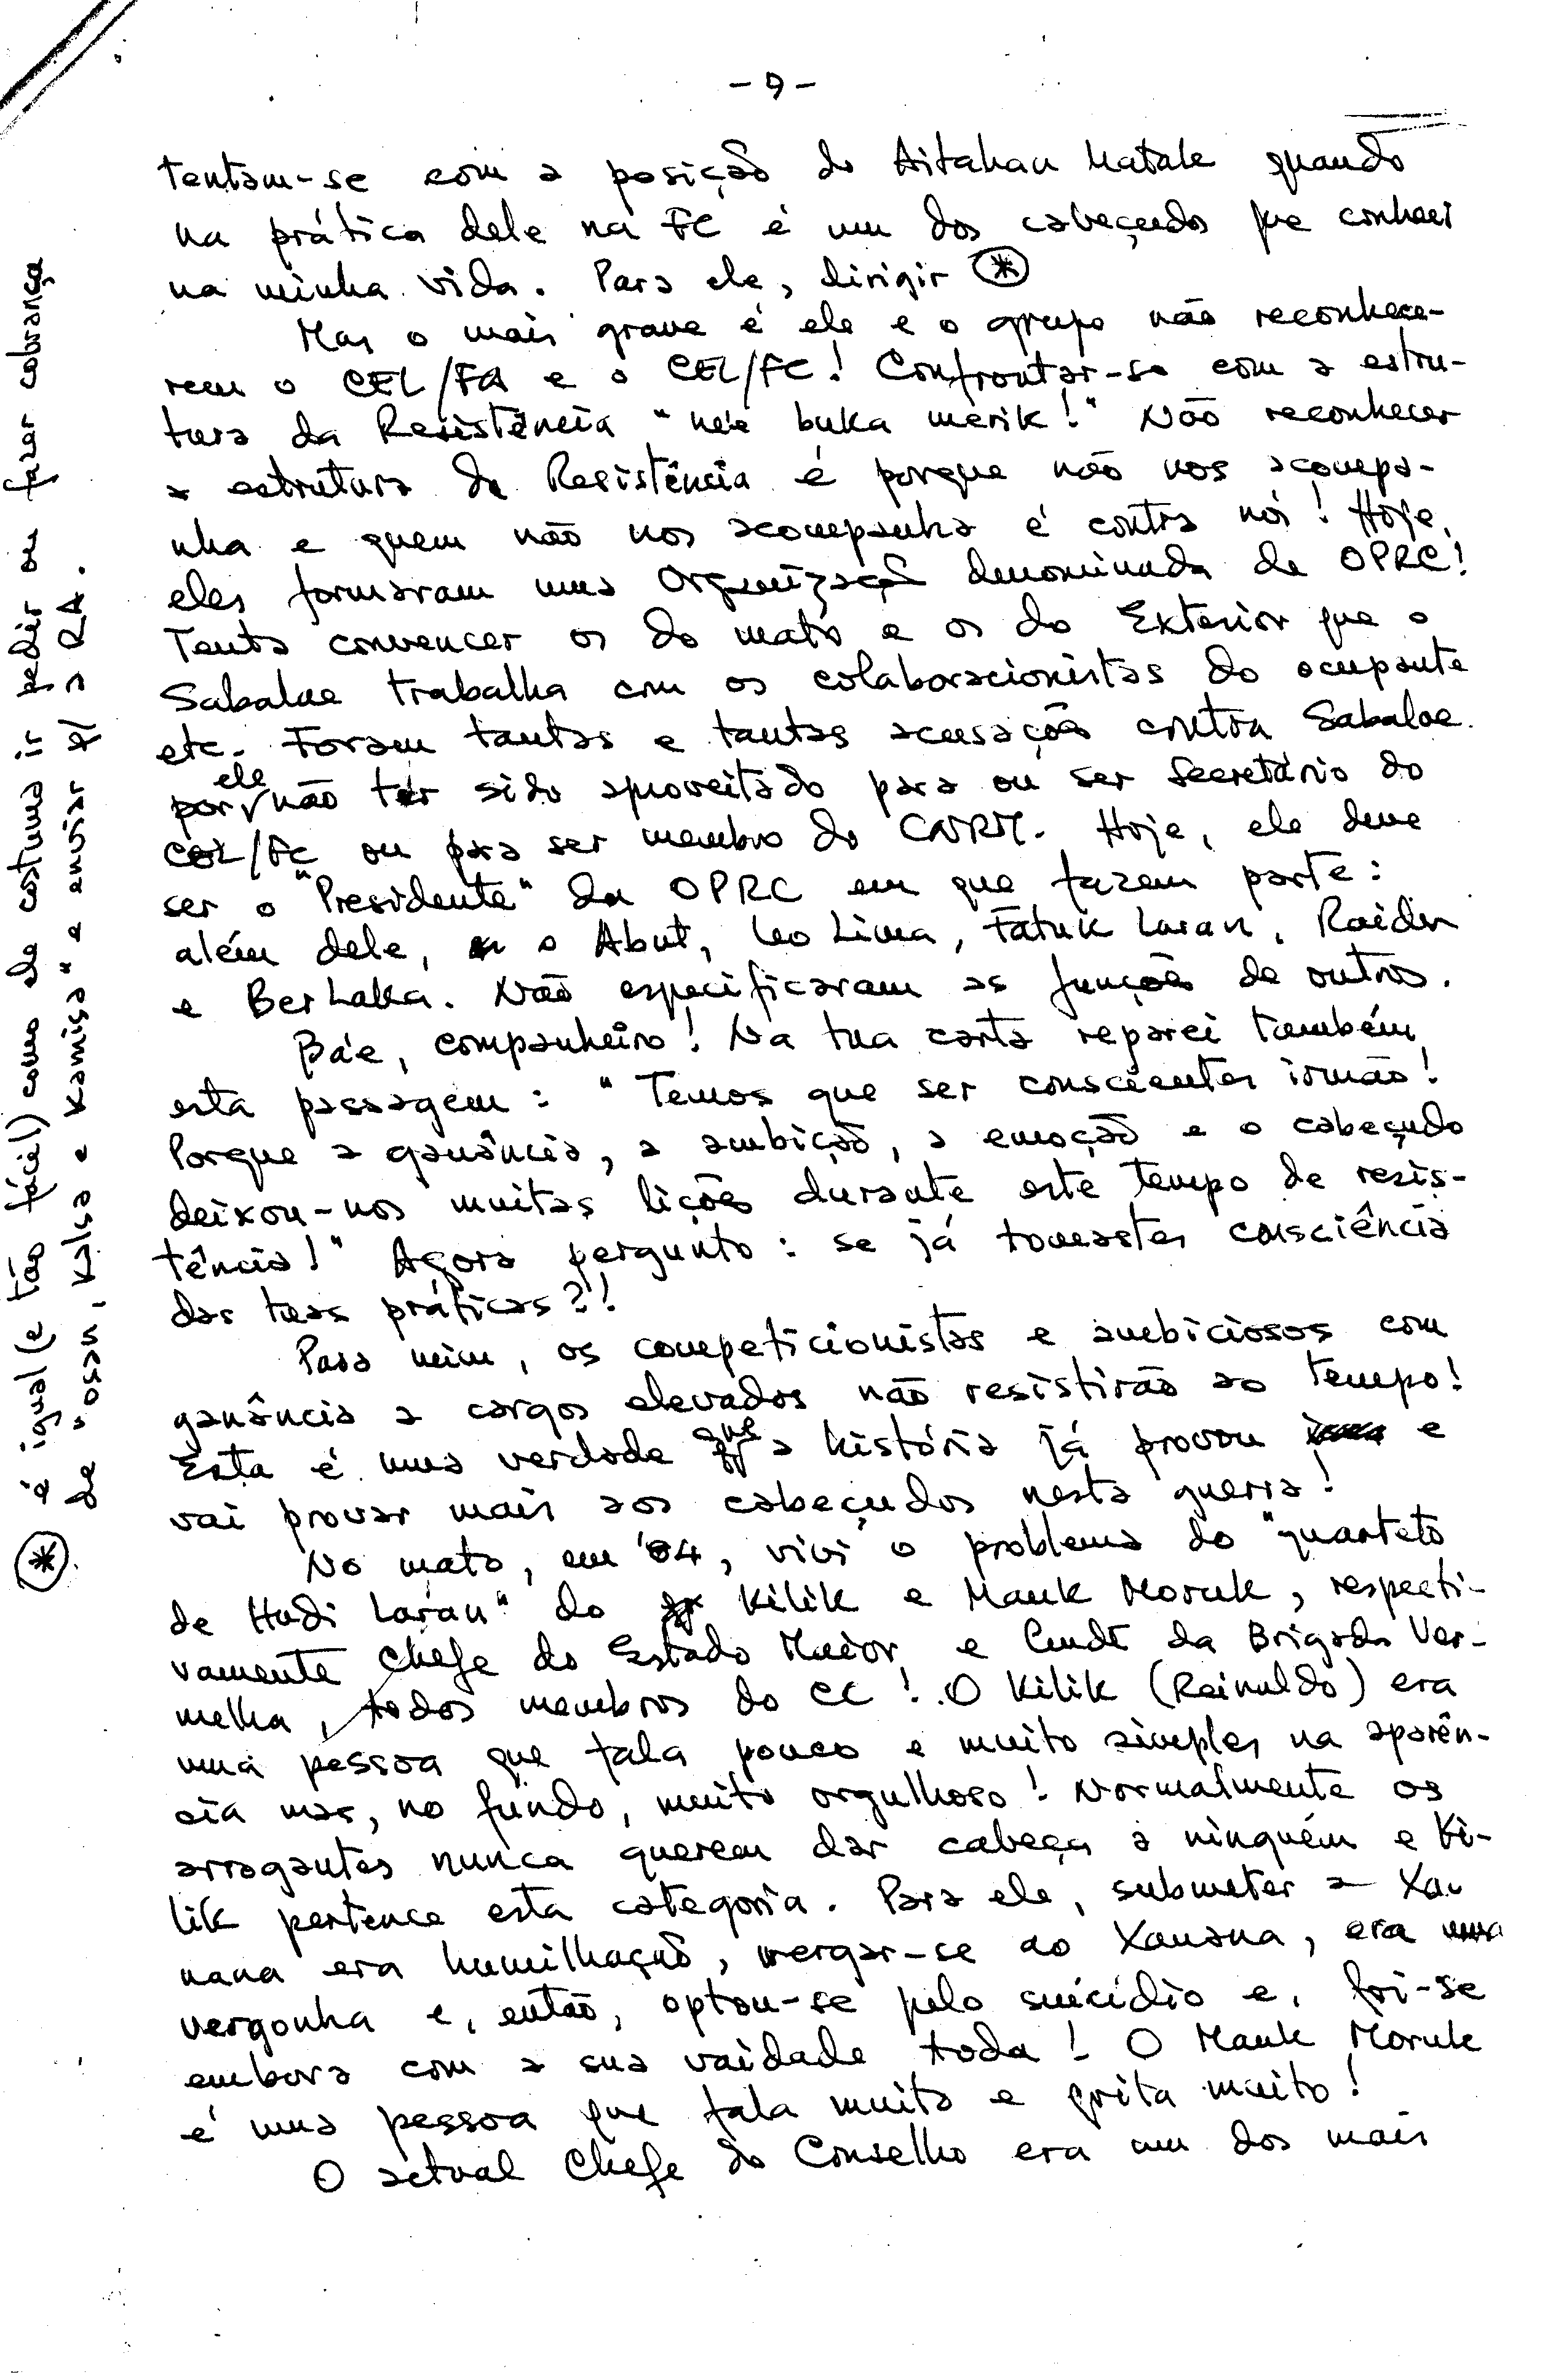 - 9 -
tentam-se com a posição do Aitahan Matak quando
na prática dele na FC é um dos cabeçudos que conheci
na minha vida. Para ele, dirigir (*)
Mas o mais grave é ele e o grupo não reconhece-
rem o CEL/FA e o CEL/FC! Confrontar-se com a estru-
tura da Resistência "né'e buka merik!" Não reconhecer
a estrutura da Resistência é porque não nos acompa-
nha e quem não nos acompanha é contra nós! Hoje,
eles formaram uma Organização denominada de OPRC!
Tenta convencer os do mato e os do Exterior que o
Sabalae trabalha com os colaboracionistas do ocupante
etc. Foram tantas e tantas acusações contra Sabalae
por ele não ter sido aproveitado para ou ser Secretário do
CEL/FC ou para ser membro do CNRM. Hoje, ele deve
ser o "Presidente" da OPRC em que fazem parte:
além dele, o Abut, Leo Lima, Fatuk Laran, Raider
e Ber Laka. Não especificaram as funções de outros.
Bá'e, companheiro! Na tua carta reparei também
esta passagem: "Temos que ser conscientes irmão!
Porque a ganância, a ambição, a emoção e o cabeçudo
deixou-nos muitas lições durante este tempo de resis-
tência!" Agora pergunto: se já tomastes consciência
das tuas práticas?!
Para mim, os competicionistas e ambiciosos com
ganância a cargos elevados não resistirão ao tempo!
Esta é uma verdade que a história já provou e
vai provar mais aos cabeçudos nesta guerra!
No mato, em '84, vivi o problema do "quarteto
de Hudi Laran" do Kilik e Mauk Moruk, respecti-
vamente Chefe do Estado Maior e Cmdt da Brigada Ver-
melha, todos membros do CC! O Kilik (Reinaldo) era
uma pessoa que fala pouco e muito simples na aparên-
cia mas, no fundo, muito orgulhoso! Normalmente os
arrogantes nunca querem dar cabeça a ninguém e Ki-
lik pertence esta categoria. Para ele, submeter a Xa-
nana era humilhação, vergar-se ao Xanana, era uma
vergonha e, então, optou-se pelo suicídio e, foi-se
embora com a sua vaidade toda! O Mauk Moruk
é uma pessoa que fala muito e grita muito!
O actual Chefe do Conselho era um dos mais
(*) é igual (e tão fácil) como ele costuma ir pedir ou fazer cobrança
de "osan, kalsa e kamisa" e enviar p/ a RA.